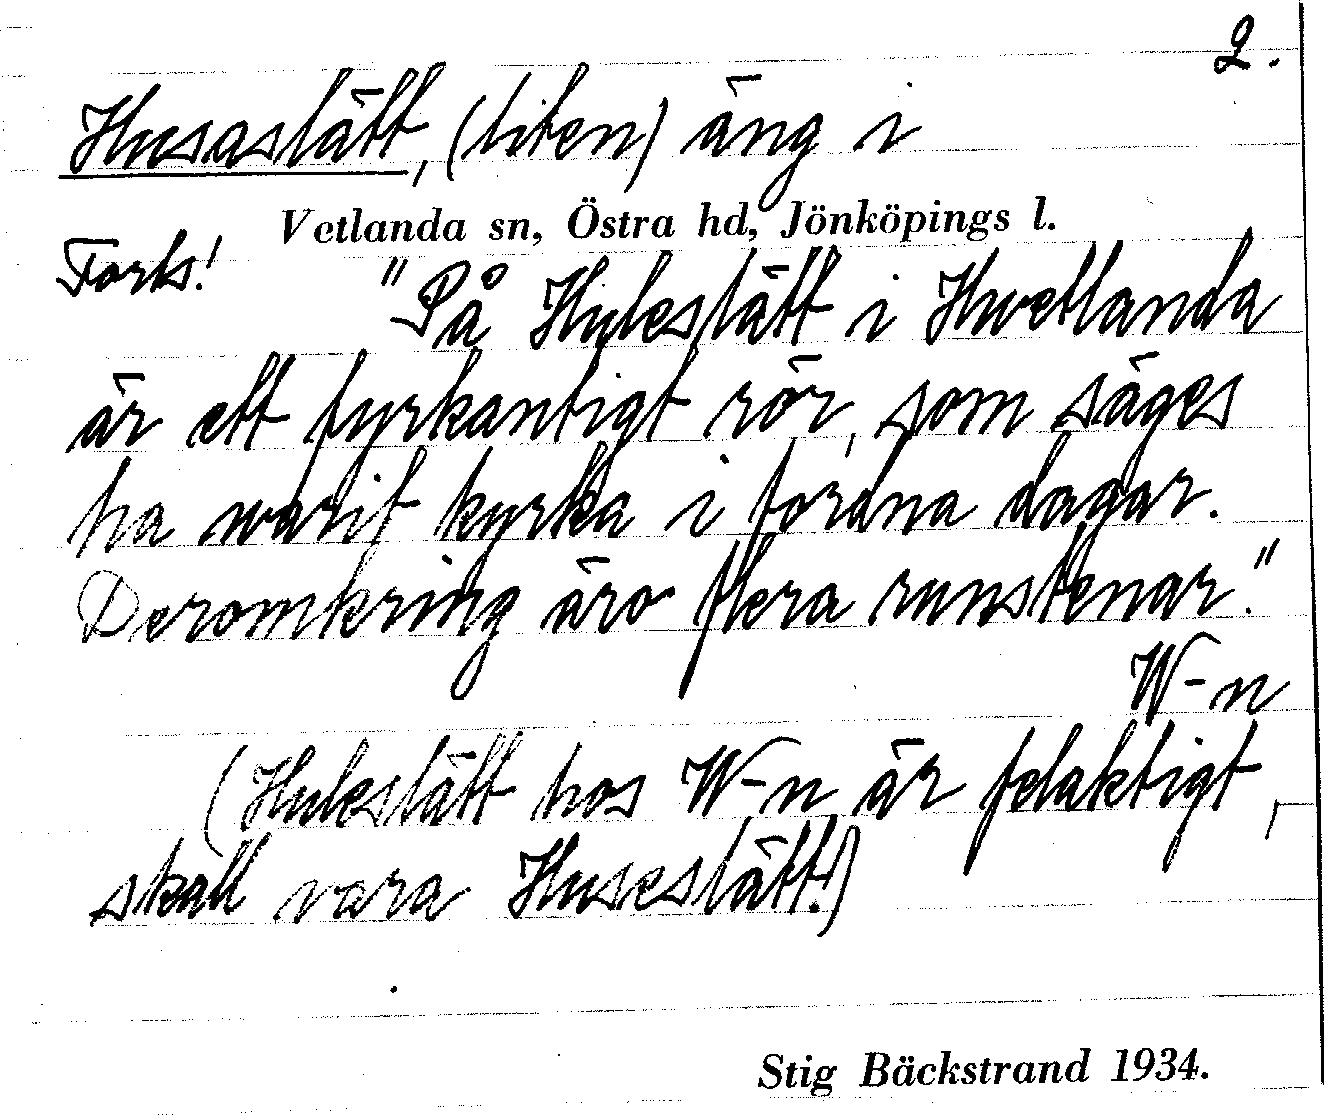 2.
Husaslätt, (liten) äng i
Vetlanda sn, Östra hd, Jönköpings l.
Forts! "På Huleslätt i Hvetlanda
är ett fyrkantigt rör, som säges
ha warit kyrka i fordna dagar.
Deromkring äro flera runstenar."
W-n
(Huleslätt hos W-n är felaktigt,
skall vara Huseslätt!)
Stig Bäckstrand 1934.